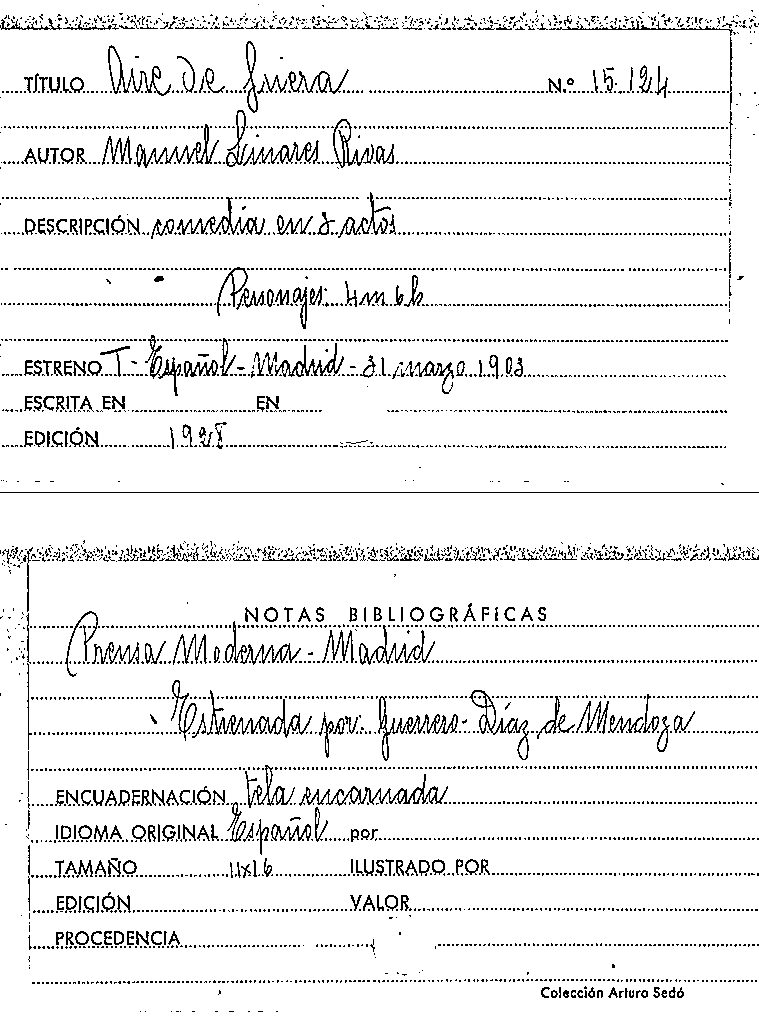 TÍTULO Aire de fuera N.º 15.124
AUTOR Manuel Linares Rivas
DESCRIPCIÓN comedia en 3 actos
Personajes: 4m 6h
ESTRENO T- Español - Madrid - 31 marzo 1903
ESCRITA EN EN
EDICIÓN 1928
NOTAS BIBLIOGRÁFICAS
Prensa Moderna - Madrid
Estrenada por: Guerrero-Díaz de Mendoza
ENCUADERNACIÓN tela encarnada
IDIOMA ORIGINAL Español por
TAMAÑO 11x16 ILUSTRADO POR
EDICIÓN VALOR
PROCEDENCIA
Colección Arturo Sedó